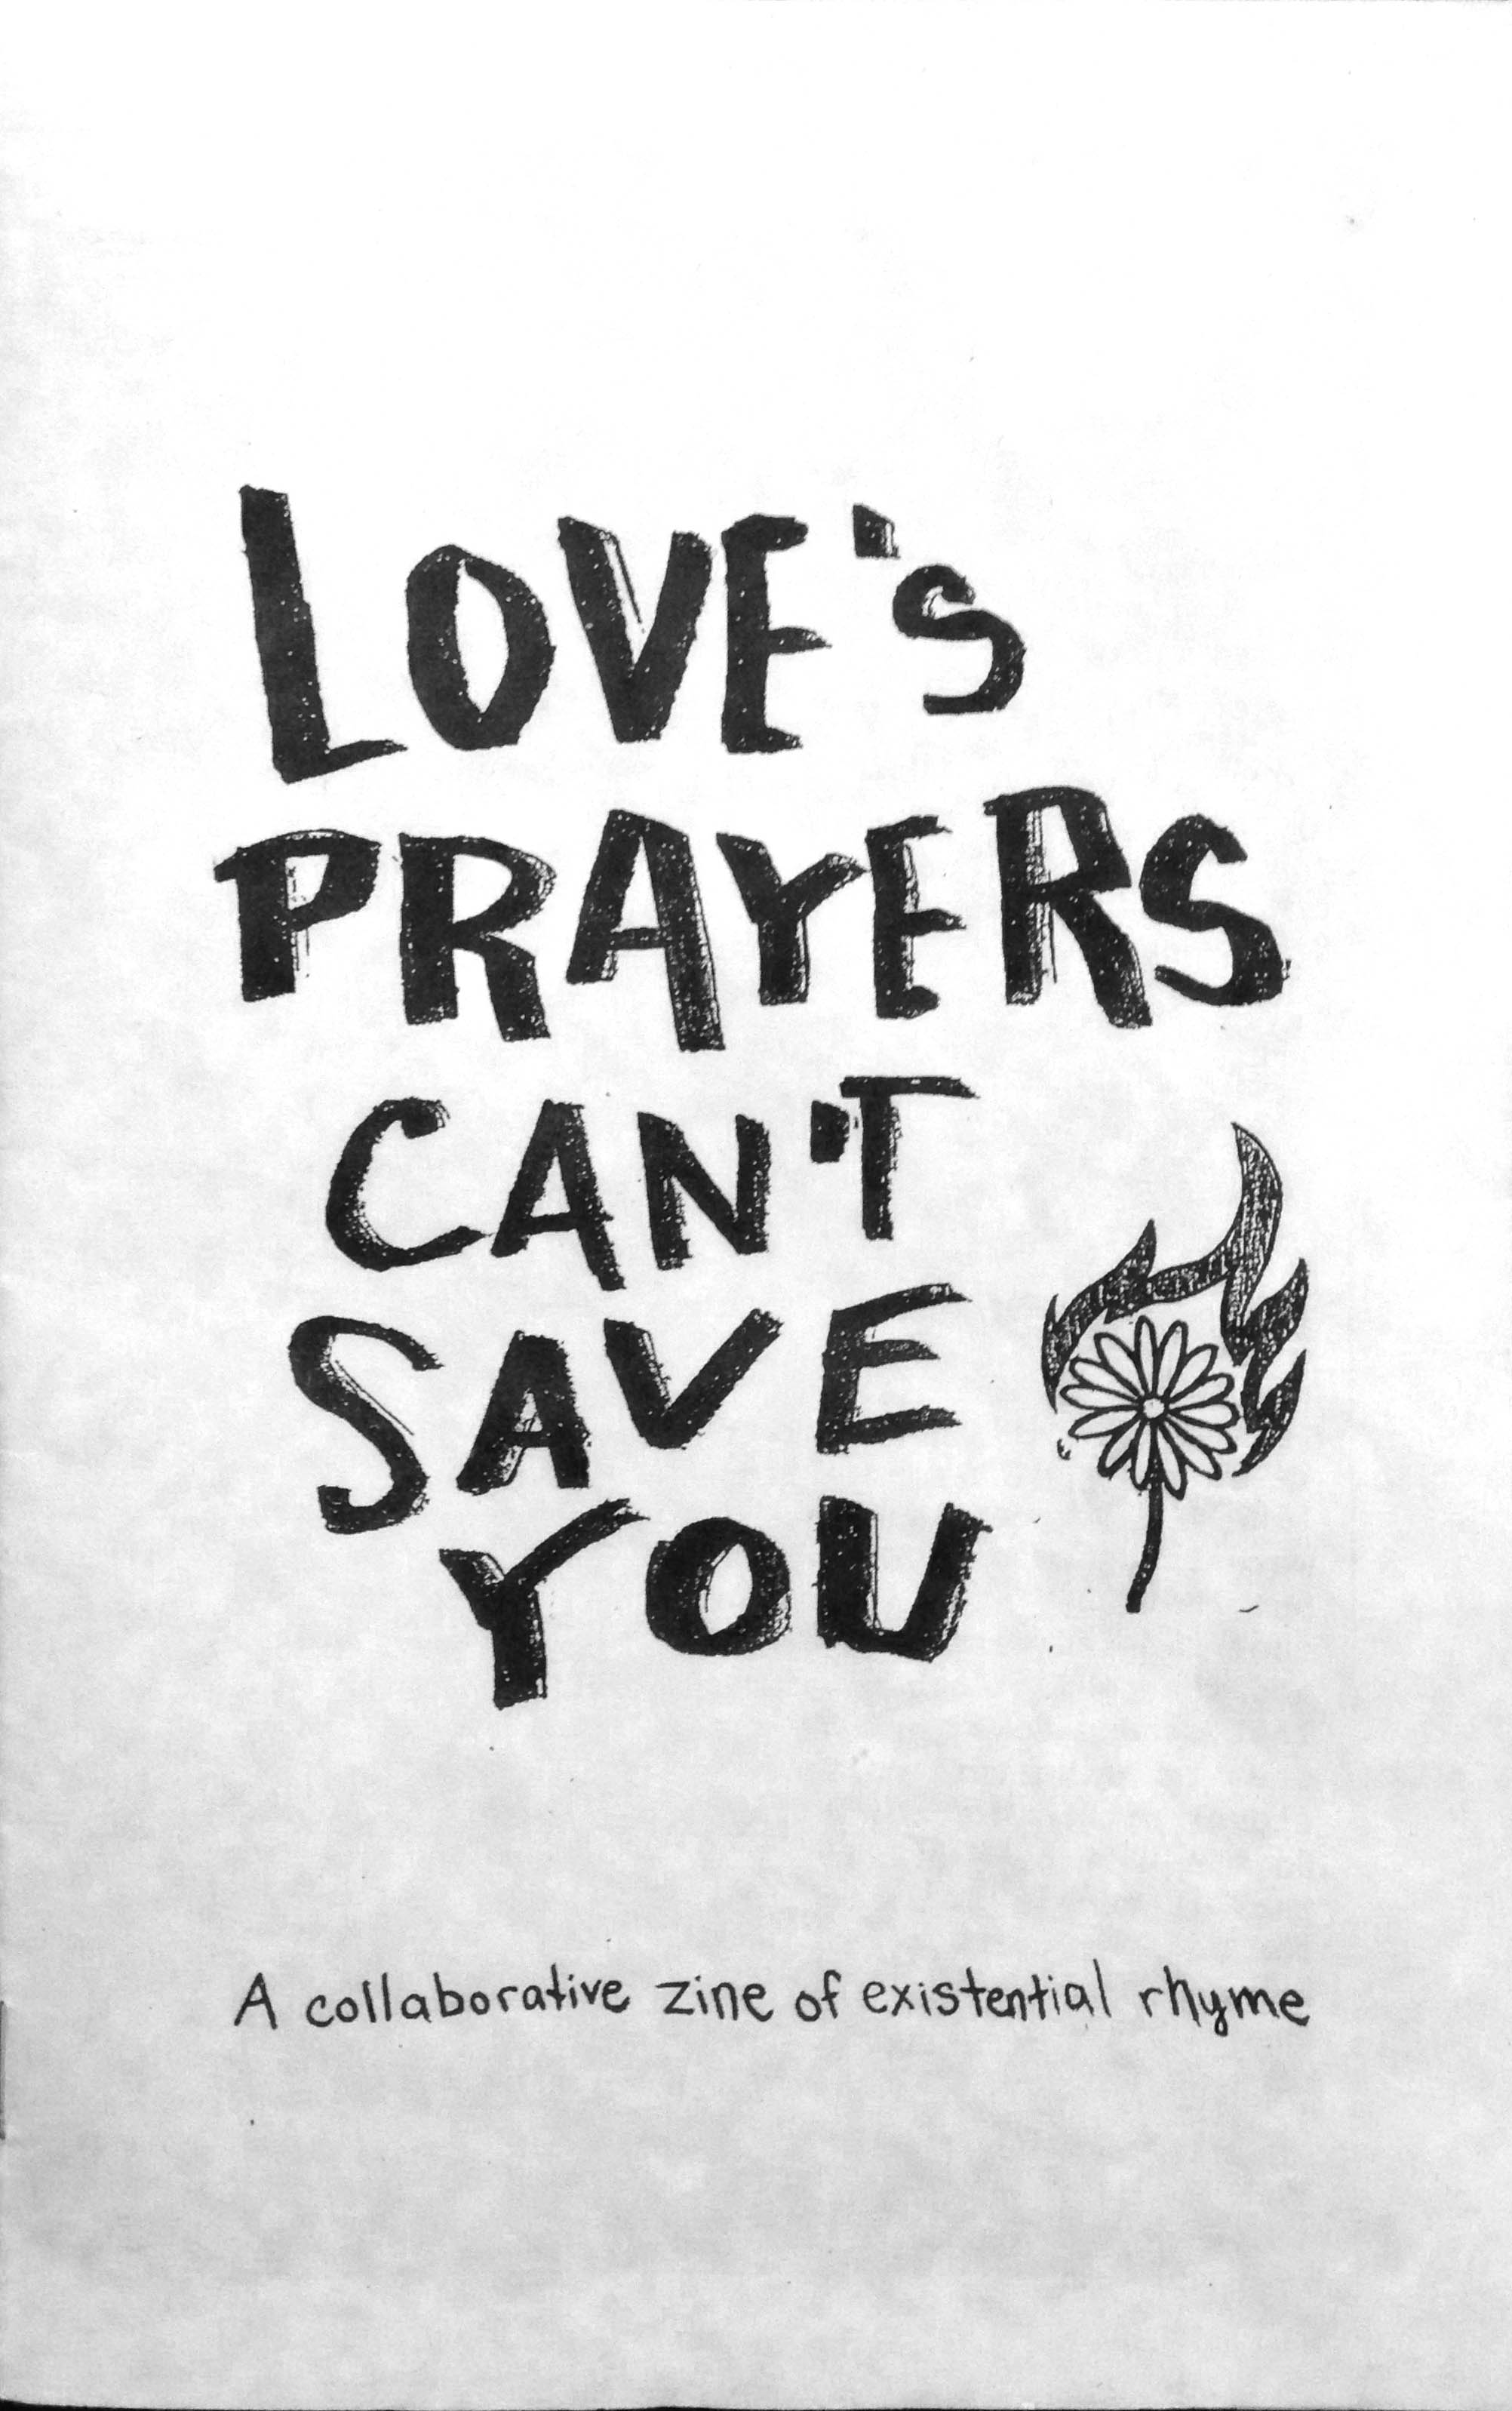 LOVE's
PRAYERS
CAN'T
SAVE
YOU
A collaborative zine of existential rhyme